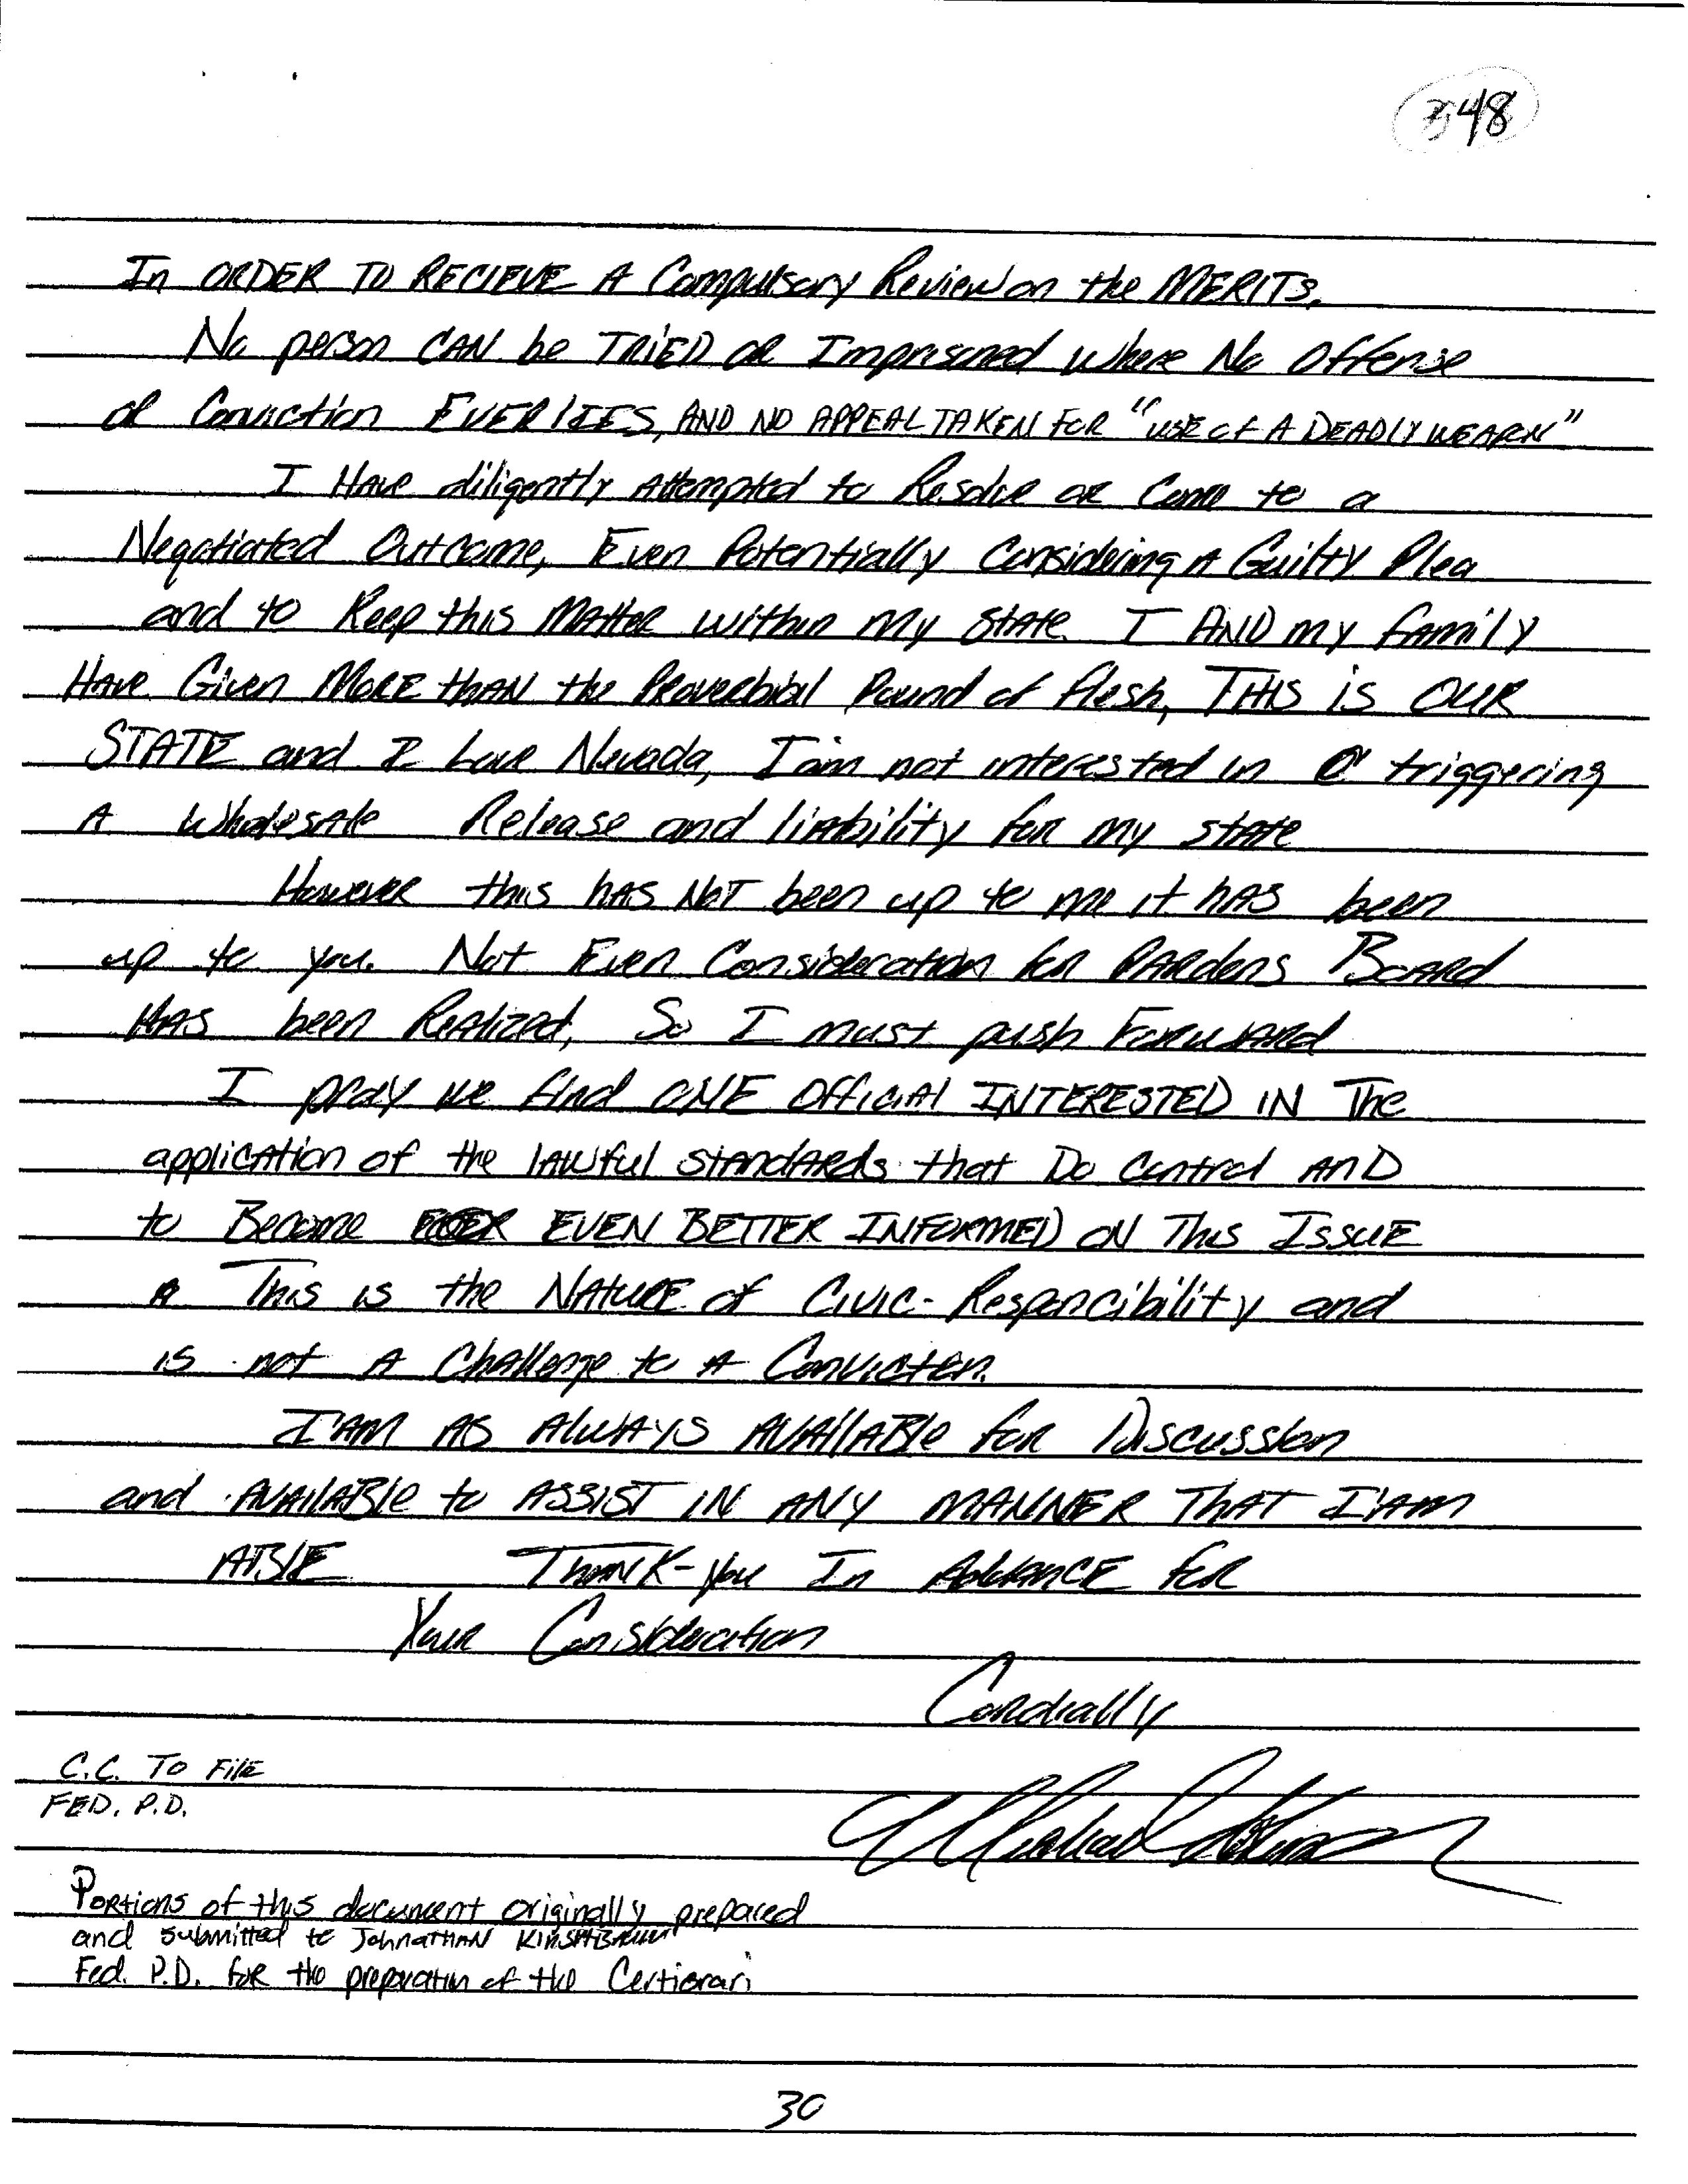 348
In ORDER TO RECIEVE A Compulsory Review on the MERITS.
No person CAN be TRIED OR Imprisoned where No Offense
OR Conviction EVER LIES, AND NO APPEAL TAKEN FOR "USE of A DEADLY WEAPN"
I HAVE diligently Attempted to Resolve OR Come to a
Negotiated Outcome, Even Potentially Considering A Guilty Plea
and to Keep this MAtter within My StAte I AND my fAmily
HAVE Given MORE thAN the Proverbial Pound of flesh, THIS iS OUR
STATE and I Love Nevada, I'am not interested in triggering
A WholesAle Release and liAbility for my stAte
However this hAS NOT been up to me it hAS been
up to you. Not Even Consideration for PARdons BOARD
HAS been ReAlized, So I must push FORWARd
I pray we find ONE OfficiAl INTERESTED IN The
applicAtion of the lAwful stAndARds that Do Control AND
to Become EVEN BETTER INFORMED ON This ISSUE
This is the NAtURE of Civic-Responcibility and
is not A Challenge to A Conviction.
I'AM AS AlWAYS AVAilABle for Discussion
and AVAilABle to ASSIST IN ANY MANNER THAT I'AM
ABlE THANK-you In AdvANCE for
Your Consideration
Cordially
C.C. TO FilE
FED. P.D.
Portions of this document originally prepared
and submitted to JohnathAN
Fed. P.D. for the preparation of the Certiorari
30